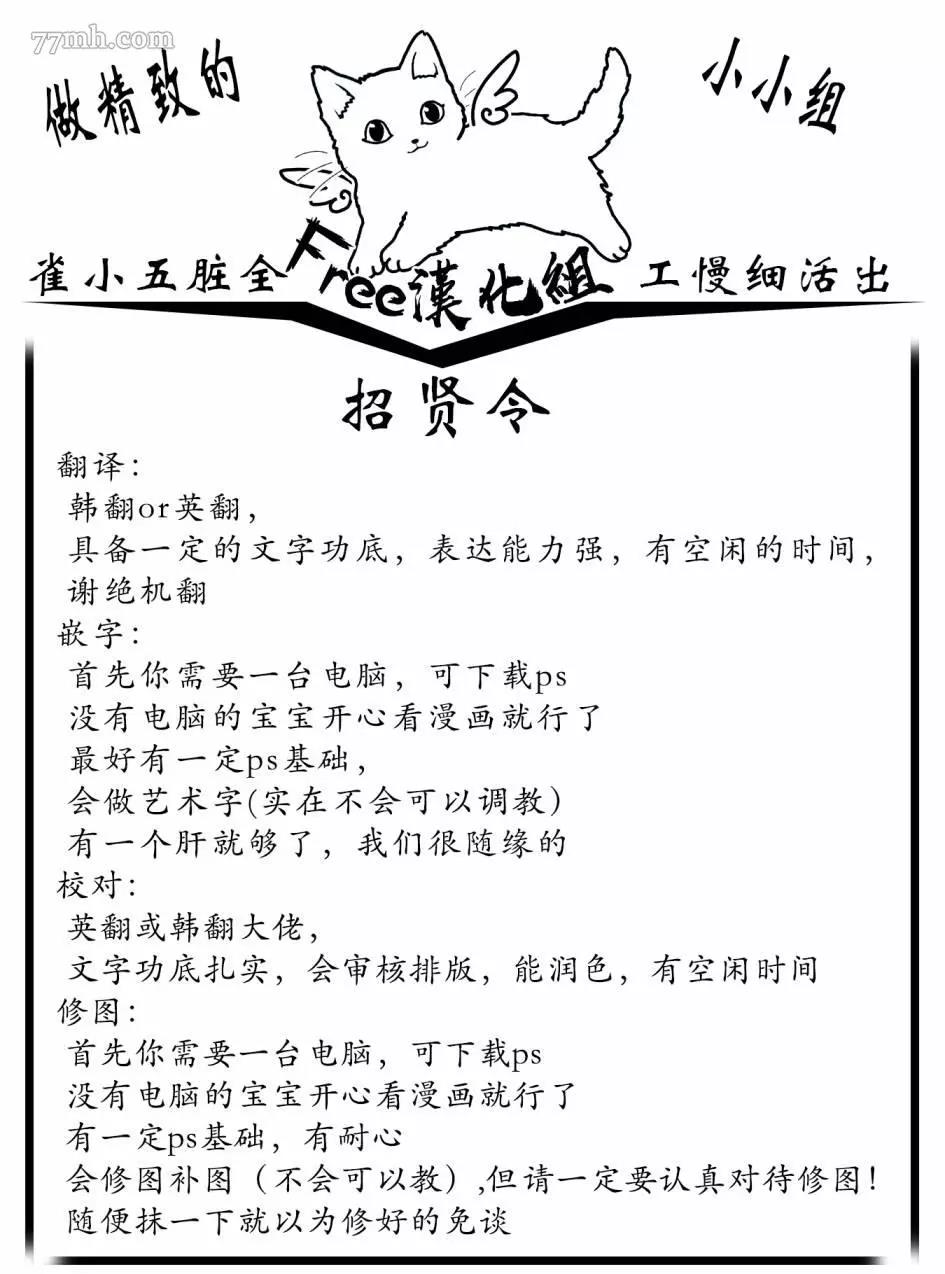 77mh.com
做精致的
小小组
雀小五脏全
Free漢化組
工慢细活出
招贤令
翻译：
韩翻or英翻，
具备一定的文字功底，表达能力强，有空闲的时间，
谢绝机翻
嵌字：
首先你需要一台电脑，可下载ps
没有电脑的宝宝开心看漫画就行了
最好有一定ps基础，
会做艺术字(实在不会可以调教）
有一个肝就够了，我们很随缘的
校对：
英翻或韩翻大佬，
文字功底扎实，会审核排版，能润色，有空闲时间
修图：
首先你需要一台电脑，可下载ps
没有电脑的宝宝开心看漫画就行了
有一定ps基础，有耐心
会修图补图（不会可以教）,但请一定要认真对待修图！
随便抹一下就以为修好的免谈